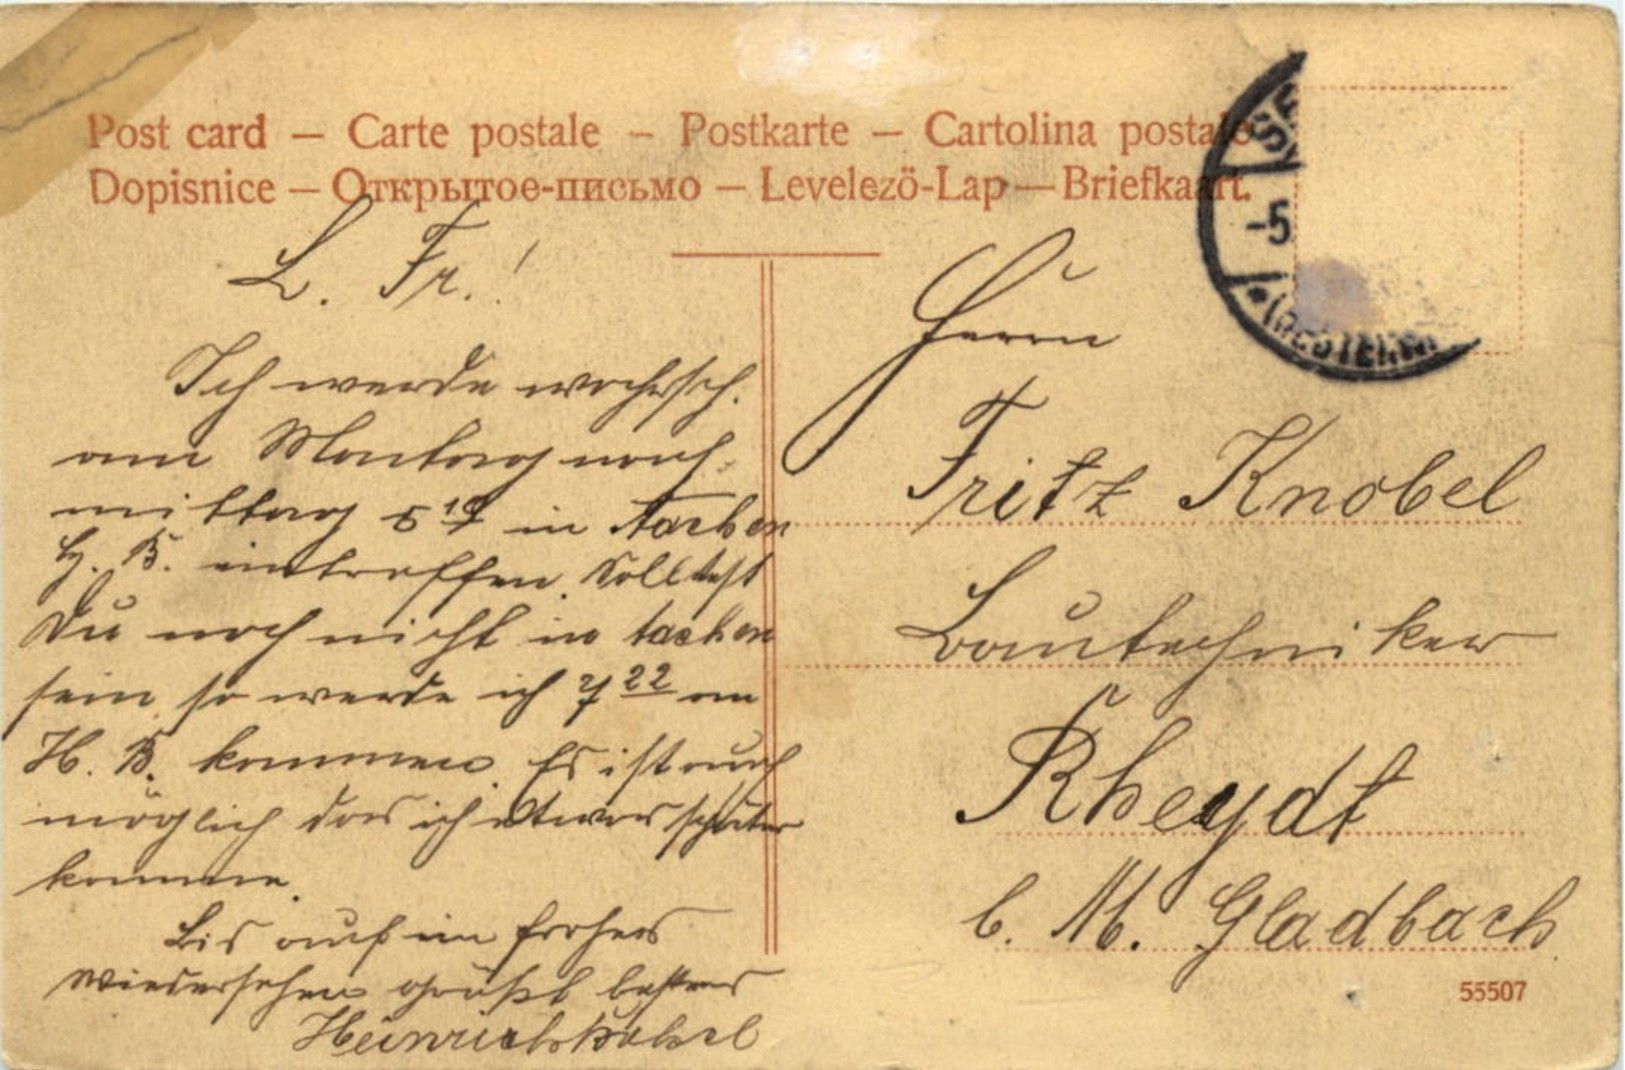 Post card — Carte postale — Postkarte — Cartolina postale
Dopisnice — Открытое-письмо — Levelezö-Lap — Briefkaart.
L. Fr.!
Ich werde wahrsch.
am Montag nach-
mittag 5 19 in Aachen
H. B. eintreffen. Solltest
Du noch nicht in Aachen
sein, so werde ich 7 22 am
H. B. kommen. Es ist auch
möglich das ich etwas später
komme.
Bis auf ein frohes
Wiedersehen grüßt bestens
Heinrich
Herrn
Fritz Knobel
Bautechniker
Rheydt
b. M. Gladbach
-5
55507